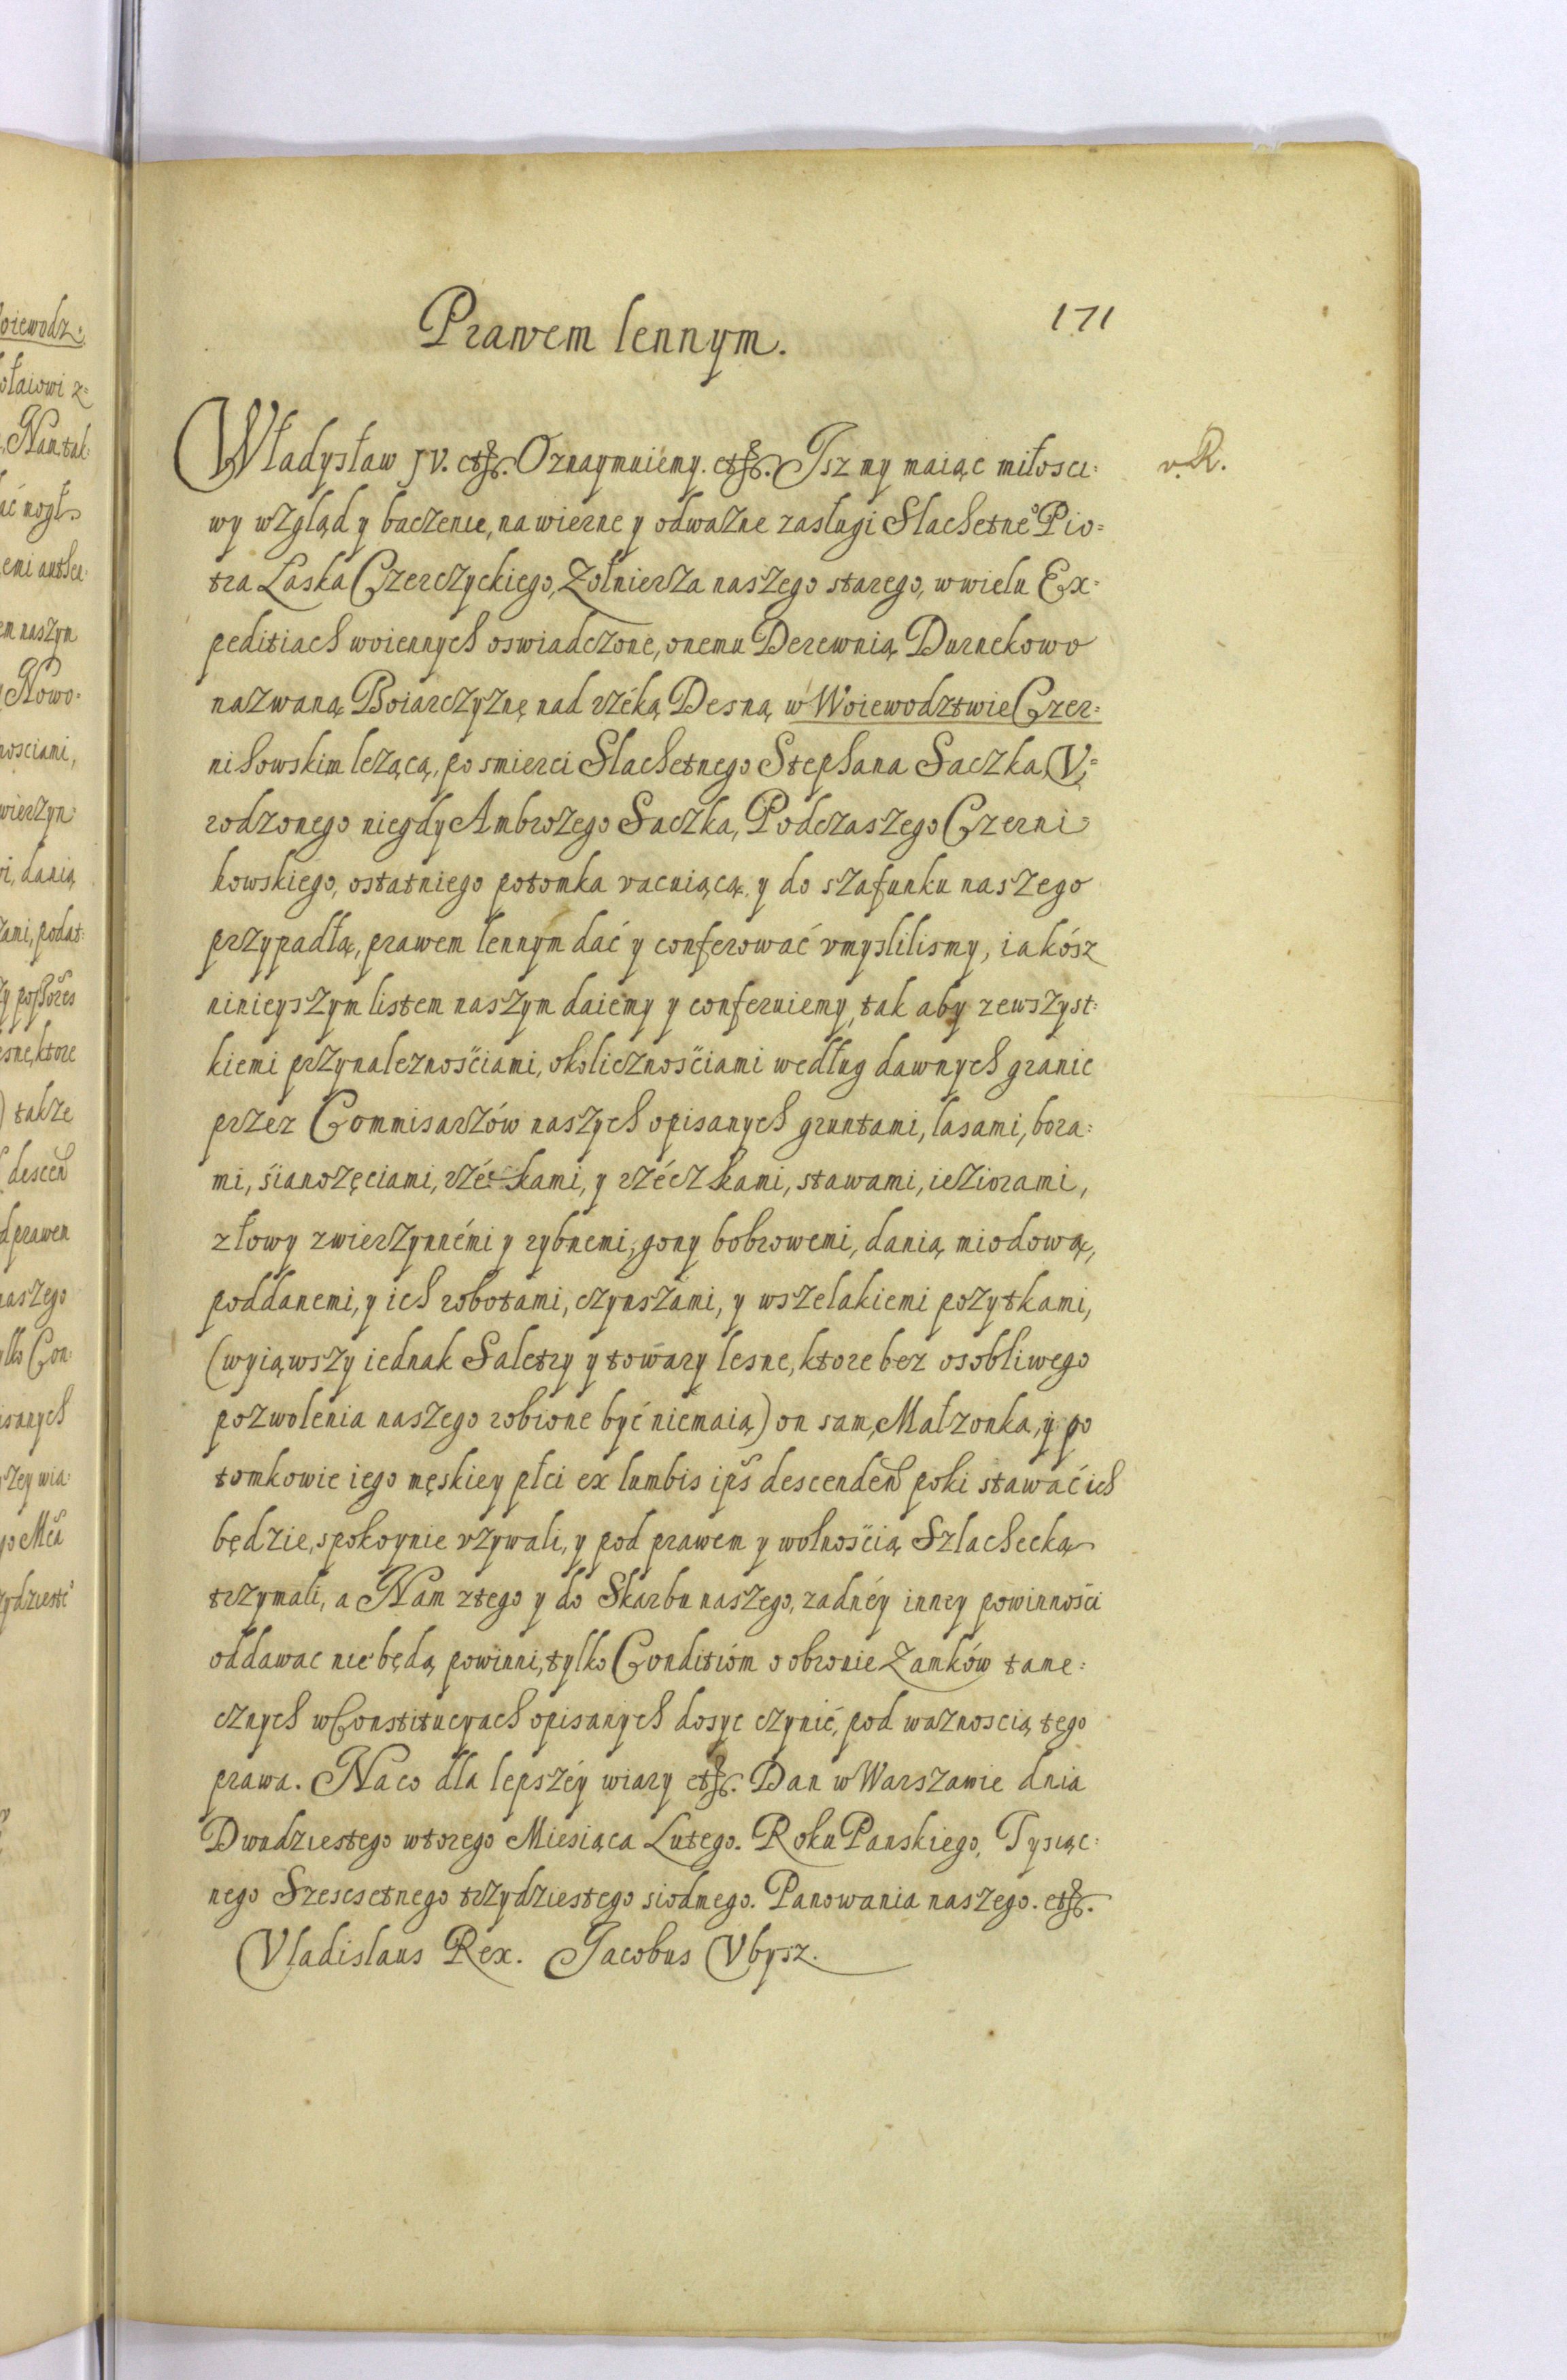 Prawem lennym.
171
Władysław IV. etc. Oznaymuiemy. etc. Isz my maiąc miłosci=
v. R.
wy wzgląd y baczenie, na wierne y odważne zasługi Slachetneº Pio=
tra Laska Czerczyckiego, Zołnierza naszego starego, w wielu Ex=
peditiach woiennych oswiadczone, onemu Derewnią Durnekowo
nazwaną Boiarczyznę nad rzéką Desną w Woiewodztwie Czer=
nihowskim lezącą, po smierci Slachetnego Stephana Saczka, V=
rodzonego niegdy Ambrozego Saczka, Podczaszego Czerni=
howskiego, ostatniego potomka vacuiącą, y do szafunku naszego
przypadłą, prawem lennym dać y conferować vmyslilismy, iakósz
ninieyszym listem naszym daiemy y conferuiemy, tak aby zewszyst=
kiemi przynaleznościami, okolicznościami według dawnych granic
przez Commisarzów naszych opisanych gruntami, lasami, bora=
mi, śianożęciami, rzékami, y rzéczkami, stawami, ieziorami,
złowy zwierzynnémi y rybnemi, gony bobrowemi, danią miodową,
poddanemi, y ich robotami, czynszami, y wszelakiemi pozytkami,
(wyiąwszy iednak Saletry y towary lesne, ktore bez osobliwego
pozwolenia naszego robione być niemaią) on sam, Małzonka, y po
tomkowie iego męskiey płci ex lumbis ips descenden poki stawać ich
będzie, spokoynie vzywali, y pod prawem y wolnością Szlachecką
trzymali, a Nam ztego y do Skarbu naszego, zadnéy inney powinności
oddawac nie będą powinni, tylko Conditióm o obronie Zamków tame=
cznych w Constitucyach opisanych dosyc czynić, pod waznoscią tego
prawa. Na co dla lepszéy wiary etc. Dan w Warszawie dnia
Dwudziestego wtorego Miesiąca Lutego. Roku Panskiego, Tysiąc=
nego Szescsetnego trzydziestego siodmego. Panowania naszego. etc.
Vladislaus Rex. Jacobus Vbysz.